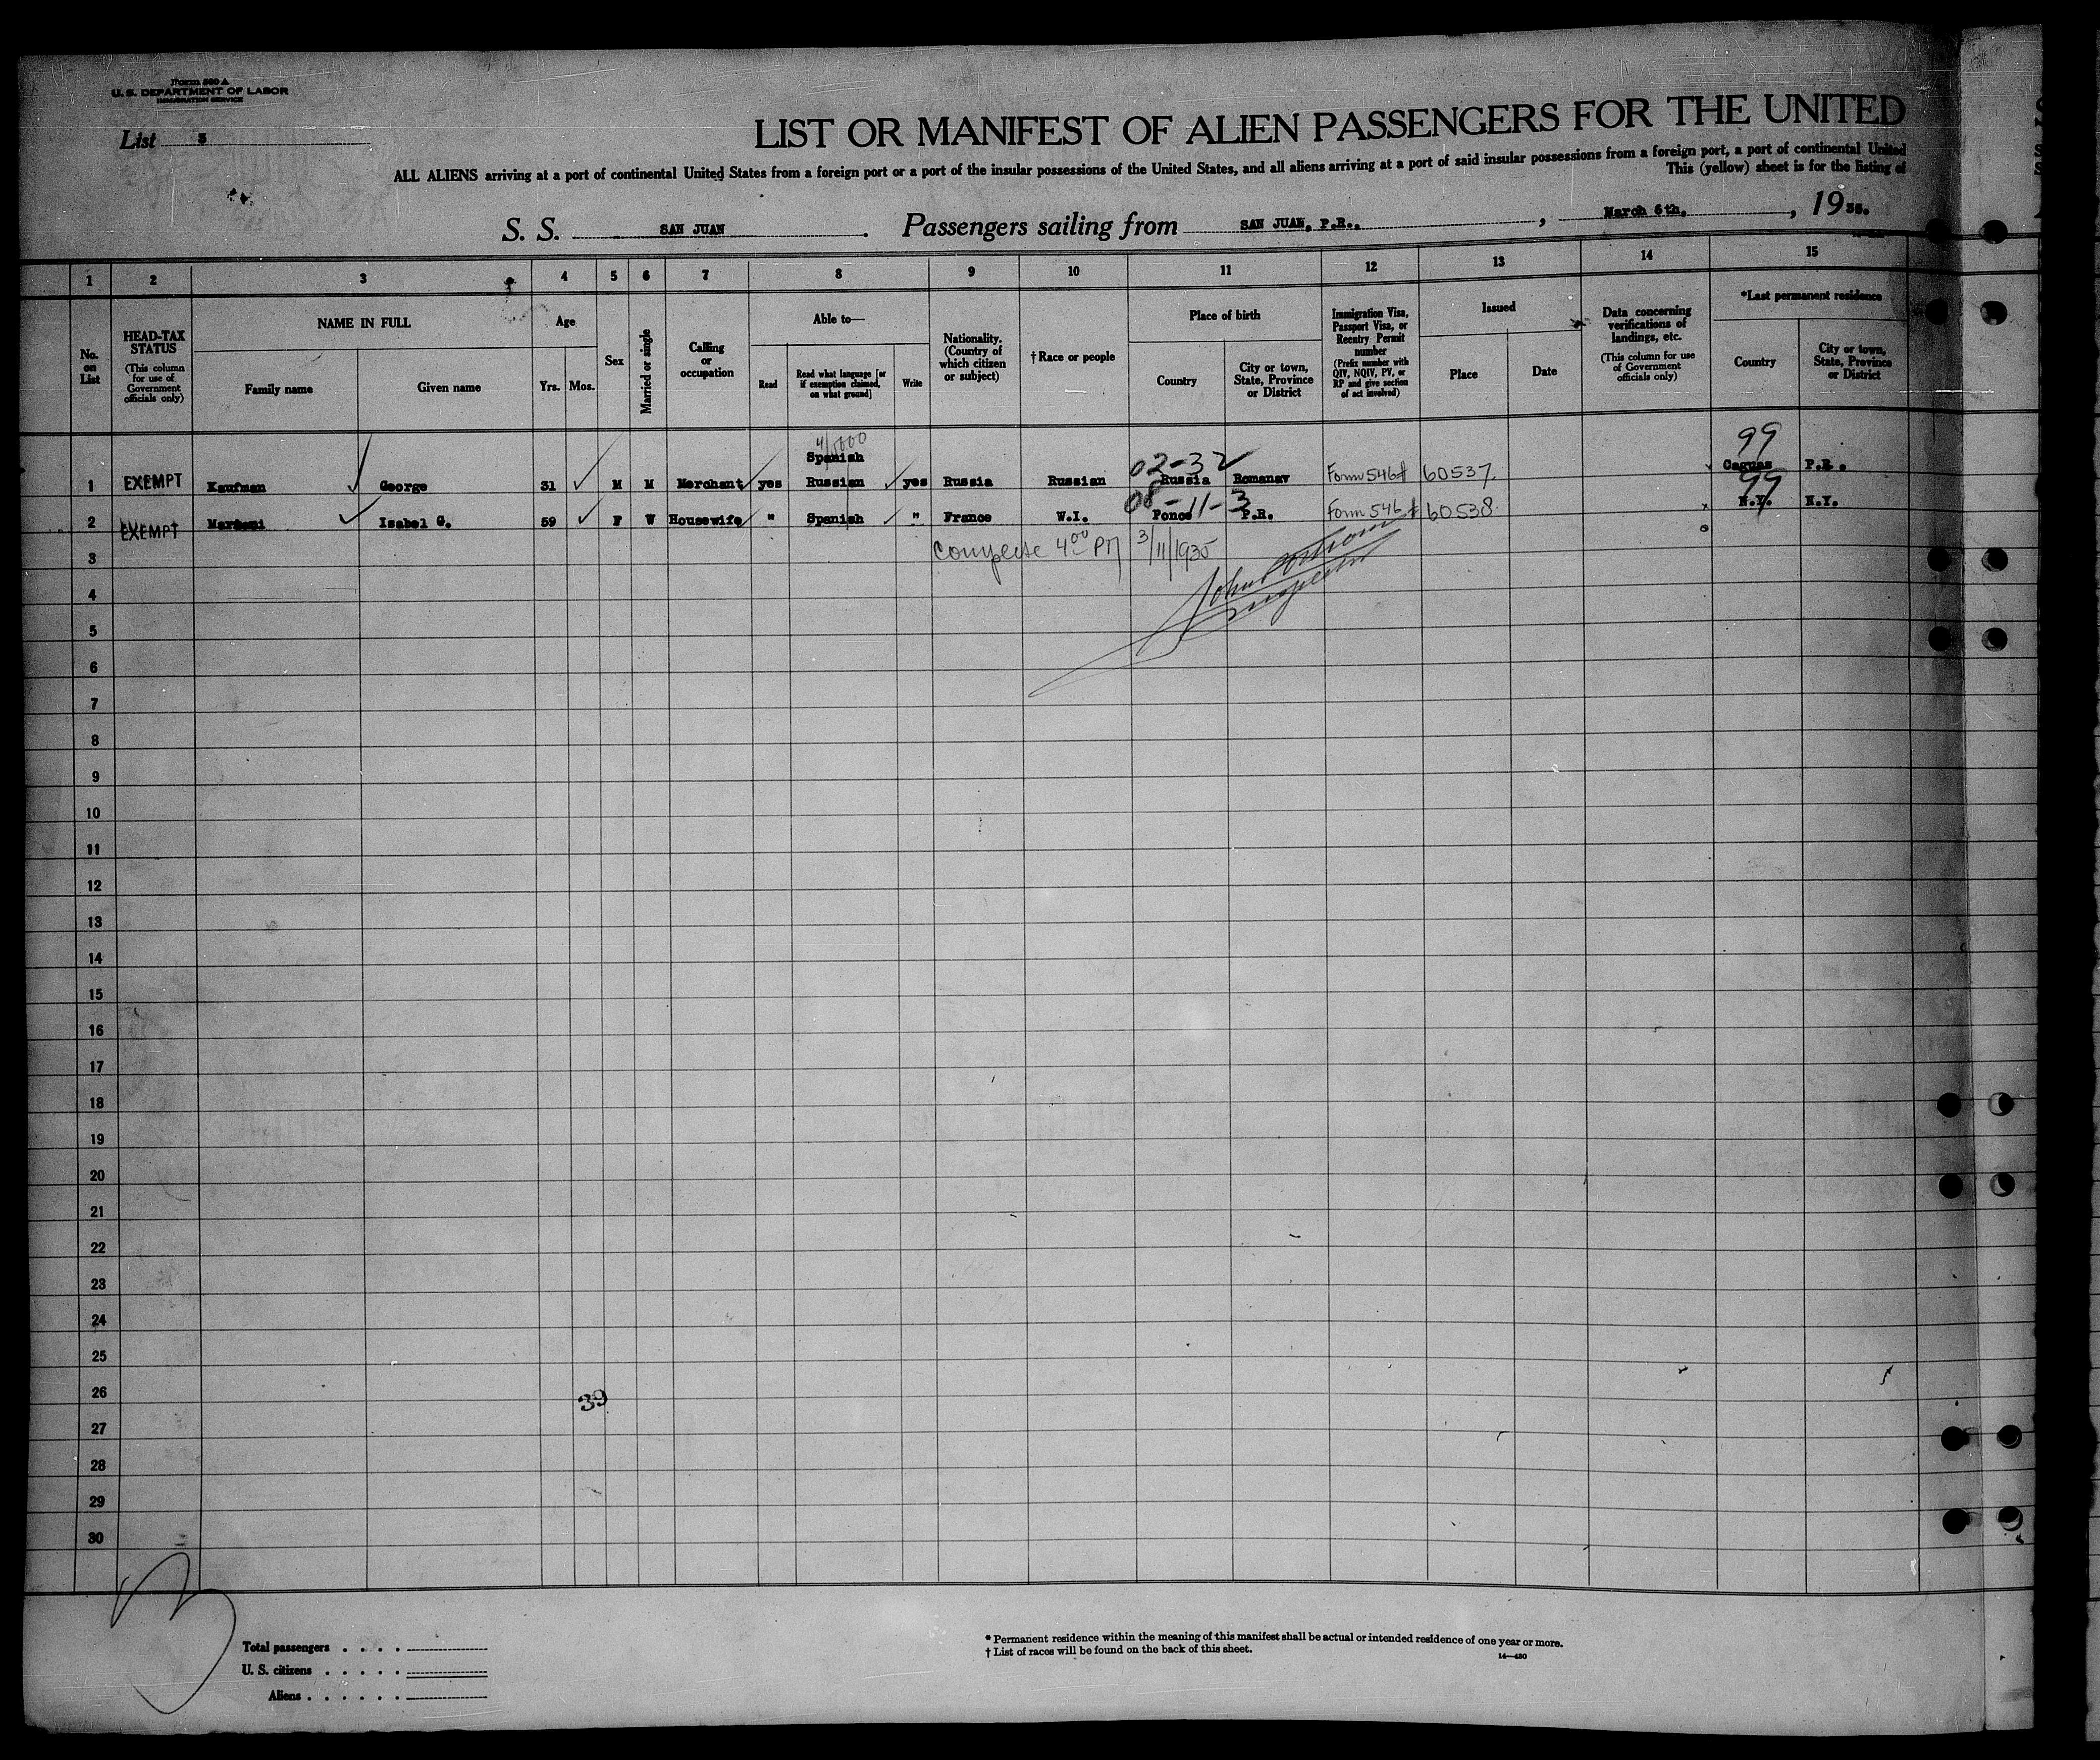 Form 500 A
U. S. DEPARTMENT OF LABOR
IMMIGRATION SERVICE
List 3
LIST OR MANIFEST OF ALIEN PASSENGERS FOR THE UNITED
ALL ALIENS arriving at a port of continental United States from a foreign port or a port of the insular possessions of the United States, and all aliens arriving at a port of said insular possessions from a foreign port, a port of continental United
This (yellow) sheet is for the listing of
S. S. SAN JUAN. Passengers sailing from SAN JUAN, P.R., March 6th, , 1935.
1 2 3 4 5 6 7 8 9 10 11 12 13 14 15
No. on List
HEAD-TAX STATUS
(This column for use of Government officials only)
NAME IN FULL
Family name
Given name
Age
Yrs. Mos.
Sex
Married or single
Calling or occupation
Able to—
Read
Read what language [or if exemption claimed, on what ground]
Write
Nationality. (Country of which citizen or subject)
† Race or people
Place of birth
Country
City or town, State, Province or District
Immigration Visa, Passport Visa, or Reentry Permit number
(Prefix number with QIV, NQIV, PV, or RP and give section of act involved)
Issued
Place
Date
Data concerning verifications of landings, etc.
(This column for use of Government officials only)
*Last permanent residence
Country
City or town, State, Province or District
Spanish 02-32 99
1 EXEMPT Kaufman George 31 M M Merchant yes Russian yes Russia Russian Russia Romanav Form 546# 60537. Caguas P.R.
08-11-3 99
2 EXEMPT Isabel G. 59 F W Housewife " Spanish " France W.I. Ponce P.R. Form 546 # 60538. N.Y. N.Y.
3 Complete 4 00 PM 3/11/1935
4 John Inspector
5
6
7
8
9
10
11
12
13
14
15
16
17
18
19
20
21
22
23
24
25
26 39
27
28
29
30
Total passengers . . . .
U. S. citizens . . . . .
Aliens . . . . . .
* Permanent residence within the meaning of this manifest shall be actual or intended residence of one year or more.
† List of races will be found on the back of this sheet.
14—430